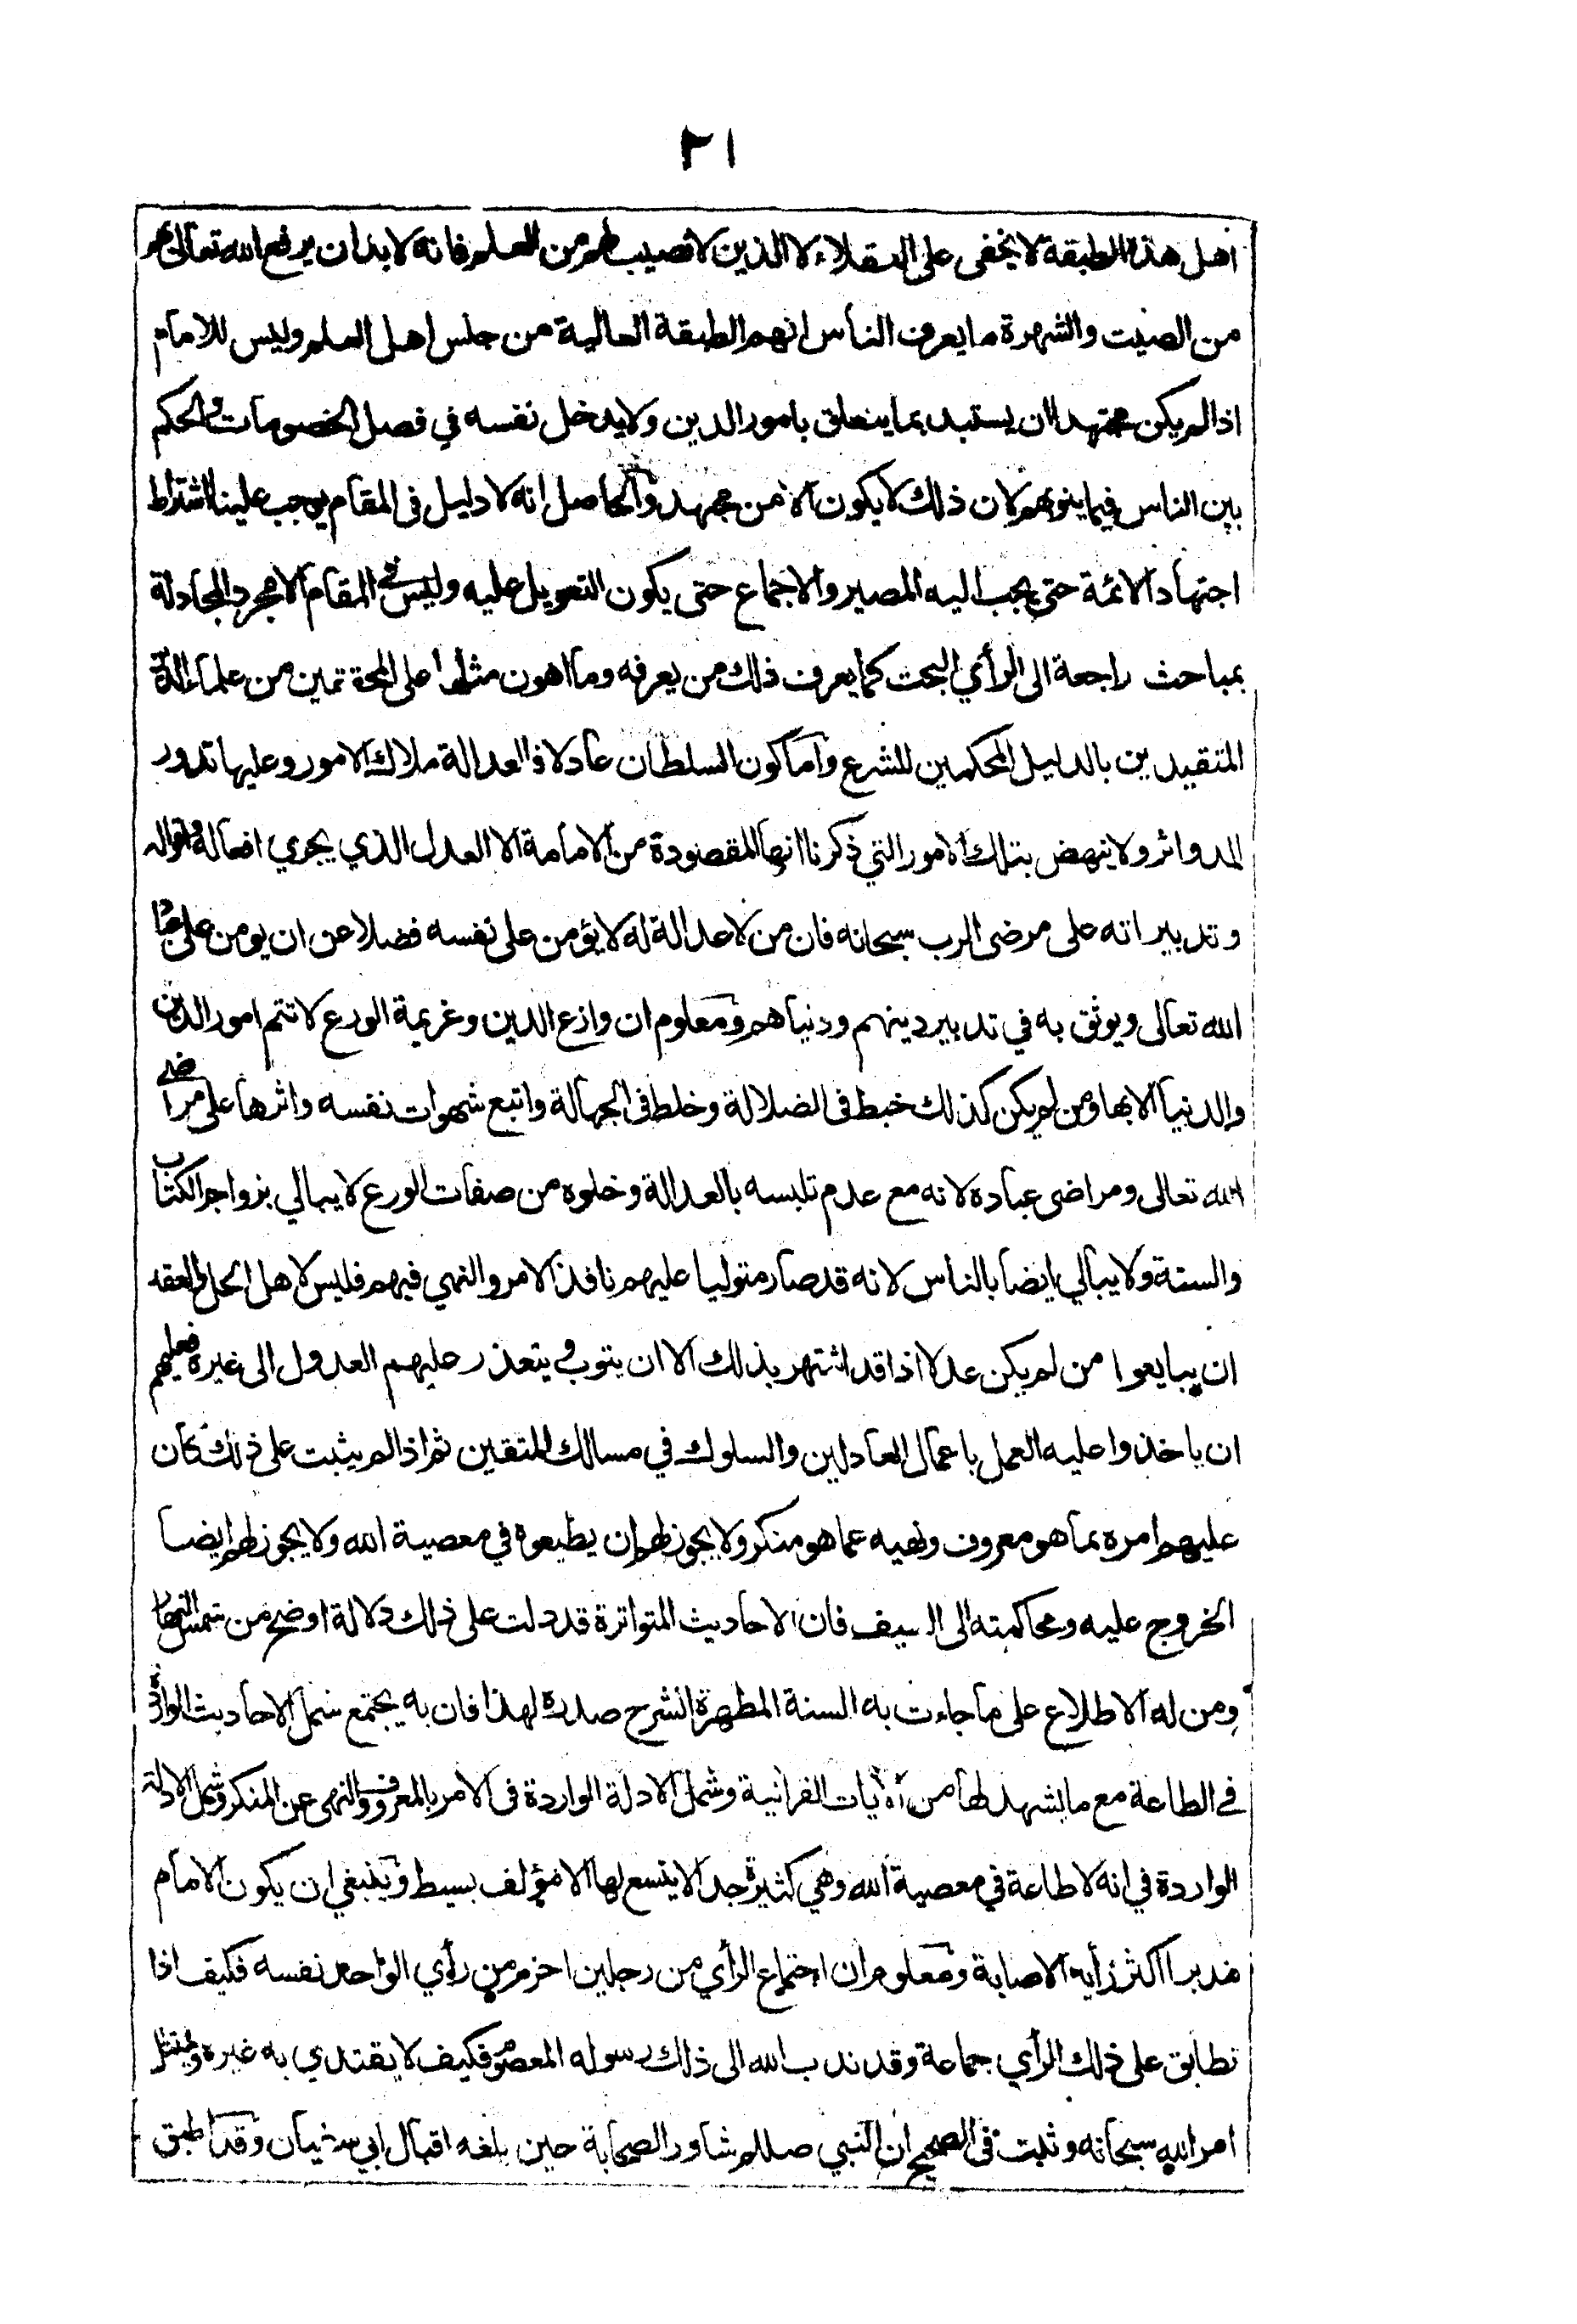 ٢١
اهل هذه الطبقة لا يخفى على العقلاء لا الذين لا نصيب لهم من العلم فانه لا بد ان يرفع الله تعالى لهم
من الصيت والشهرة ما يعرف الناس انهم الطبقة العالية من جلس اهل العلم وليس للامام
اذا لم يكن مجتهدا ان يستبد بما يتعلق بامور الدين ولا يدخل نفسه في فصل الخصومات والحكم
بين الناس فيما ينوبهم لان ذلك لا يكون الا من مجتهد والحاصل انه لا دليل فى المقام يوجب علينا اشتراط
اجتهاد الائمة حتى يجب اليه المصير والاجماع حتى يكون التعويل عليه وليس في المقام الا مجرد المجادلة
بمباحث راجعة الى الرأي البحت كما يعرف ذلك من يعرفه وما اهون مثلها على المحققين من علماء
المتقيدين بالدليل المحكمين للشرع واما كون السلطان عادلا فالعدالة ملاك الامور وعليها تدور
الدوائر ولا ينهض بتلك الامور التي ذكرنا انها المقصودة من الامامة الا العدل الذي يجري افعاله واقواله
وتدبيراته على مرضى الرب سبحانه فان من لا عدالة له لا يؤمن على نفسه فضلا عن ان يومن على عباد
الله تعالى ويوثق به في تدبير دينهم ودنياهم ومعلوم ان وازع الدين وعزيمة الورع لا تتم امور الدين
والدنيا الا بها ومن لم يكن كذلك خبط فى الضلالة وخلط فى الجهالة واتبع شهوات نفسه واثرها على مراضي
الله تعالى ومراضى عباده لانه مع عدم تلبسه بالعدالة وخلوه من صفات الورع لا يبالي بزواجر الكتاب
والسنة ولا يبالي ايضا بالناس لانه قد صار متوليا عليهم نافذ الامر والنهي فيهم فليس لاهل الحل والعقد
ان يبايعوا من لم يكن عدلا اذا قد اشتهر بذلك الا ان يتوب و يتعذر عليهم العدول الى غيره فعليهم
ان ياخذوا عليه العمل باعمال العادلين والسلوك في مسالك المتقين ثم اذا لم يثبت على ذلك كان
عليهم امره بما هو معروف ونهيه عما هو منكر ولا يجوز لهم ان يطيعوه في معصية الله ولا يجوز لهم ايضا
الخروج عليه ومحاكمته الى السيف فان الاحاديث المتواترة قد دلت على ذلك دلالة اوضح من شمس النهار
ومن له الاطلاع على ما جاءت به السنة المطهرة انشرح صدره لهذا فان به يجتمع شمل الاحاديث الواردة
في الطاعة مع ما يشهد لها من الايات القرانية وشمل الادلة الواردة فى الامر بالمعروف والنهى عن المنكر وشمل الادلة
الواردة في انه لا طاعة في معصية الله وهي كثيرة جدا لا يتسع لها الا مؤلف بسيط وينبغي ان يكون الامام
مدبرا اكثر رأيه الاصابة ومعلوم ان اجتماع الرأي من رجلين احزم من رأي الواحد نفسه فكيف اذا
تطابق على ذلك الرأي جماعة وقد ندب الله الى ذلك رسوله المعصوم فكيف لا يقتدي به غيره ويمتثل
امر الله سبحانه وثبت فى الصحيح ان النبي صللم شاور الصحابة حين بلغه اقبال ابي سفيان وقد اطبق